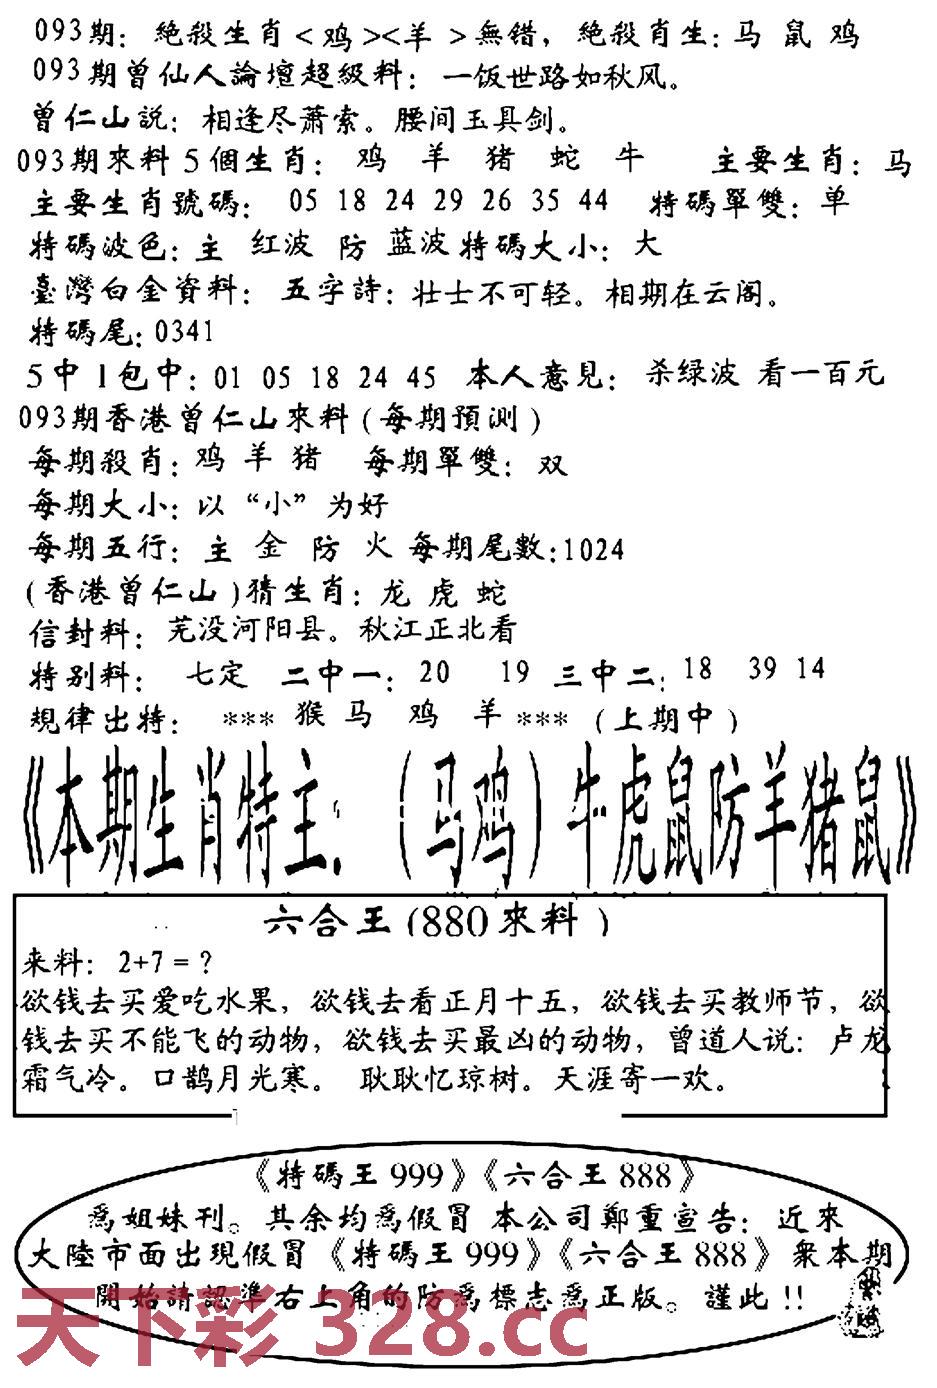 093期: 絶殺生肖<鸡><羊>無错, 絶殺肖生:马 鼠 鸡
093期曾仙人論壇超級料: 一饭世路如秋风。
曾仁山説: 相逢尽萧索。腰间玉具剑。
093期來料5個生肖: 鸡 羊 猪 蛇 牛 主要生肖:马
主要生肖號碼: 05 18 24 29 26 35 44 特碼單雙:单
特碼波色:主 红波 防 蓝波 特碼大小: 大
臺灣白金資料: 五字詩:壮士不可轻。相期在云阁。
特碼尾:0341
5中1包中:01 05 18 24 45 本人意見: 杀绿波 看一百元
093期香港曾仁山來料(每期預测)
每期殺肖:鸡 羊 猪 每期單雙: 双
每期大小:以“小”为好
每期五行: 主 金 防 火 每期尾數:1024
(香港曾仁山)猜生肖: 龙 虎 蛇
信封料: 芜没河阳县。秋江正北看
特别料: 七定 二中一: 20 19 三中二: 18 39 14
規律出特: *** 猴 马 鸡 羊 *** (上期中)
《本期生肖特主:(马鸡)牛虎鼠防羊猪鼠》
六合王(880來料)
来料: 2+7=?
欲钱去买爱吃水果, 欲钱去看正月十五, 欲钱去买教师节, 欲
钱去买不能飞的动物, 欲钱去买最凶的动物, 曾道人说: 卢龙
霜气冷。口鹊月光寒。 耿耿忆琼树。天涯寄一欢。
《特碼王999》《六合王888》
爲姐妹刊。其余均爲假冒 本公司鄭重宣告: 近來
大陸市面出現假冒《特碼王999》《六合王888》衆本期
開始請認準右上角的防爲標志爲正版。謹此!!
天下彩 328.cc